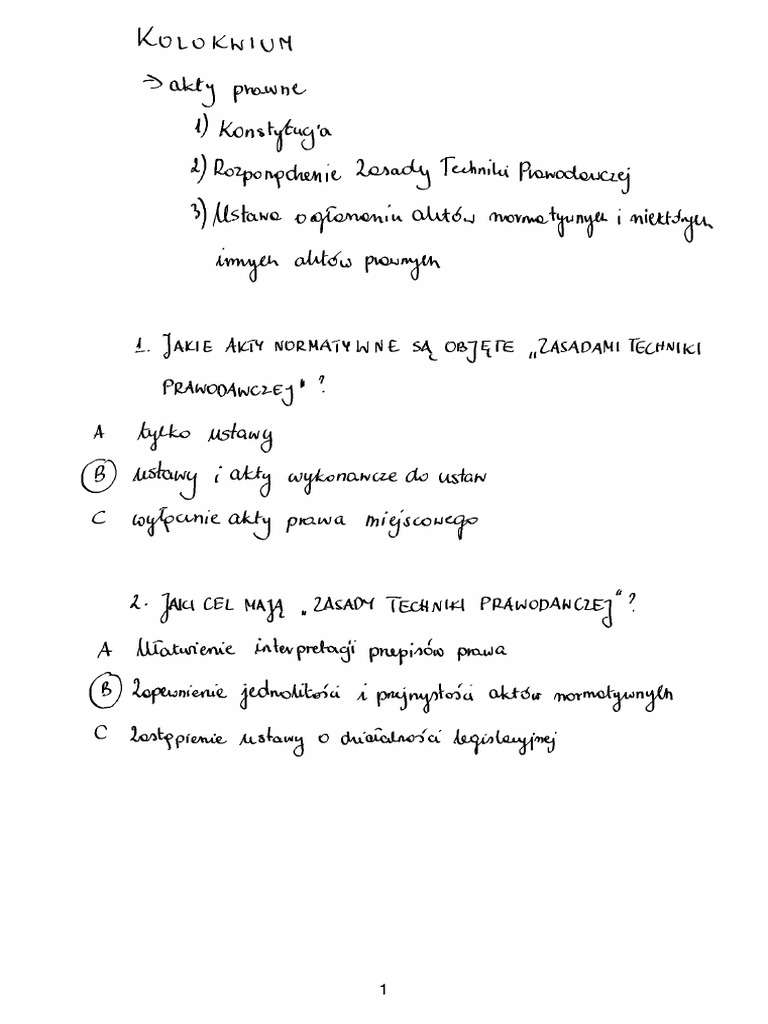 KOLOKWIUM
→ akty prawne
1) Konstytucja
2) Rozporządzenie Zasady Techniki Prawodawczej
3) Ustawa o ogłaszaniu aktów normatywnych i niektórych
innych aktów prawnych
1. JAKIE AKTY NORMATYWNE SĄ OBJĘTE „ZASADAMI TECHNIKI
PRAWODAWCZEJ"?
A tylko ustawy
B ustawy i akty wykonawcze do ustaw
C wyłącznie akty prawa miejscowego
2. JAKI CEL MAJĄ „ZASADY TECHNIKI PRAWODAWCZEJ"?
A Ułatwienie interpretacji przepisów prawa
B Zapewnienie jednolitości i przejrzystości aktów normatywnych
C Zastąpienie ustawy o działalności legislacyjnej
1